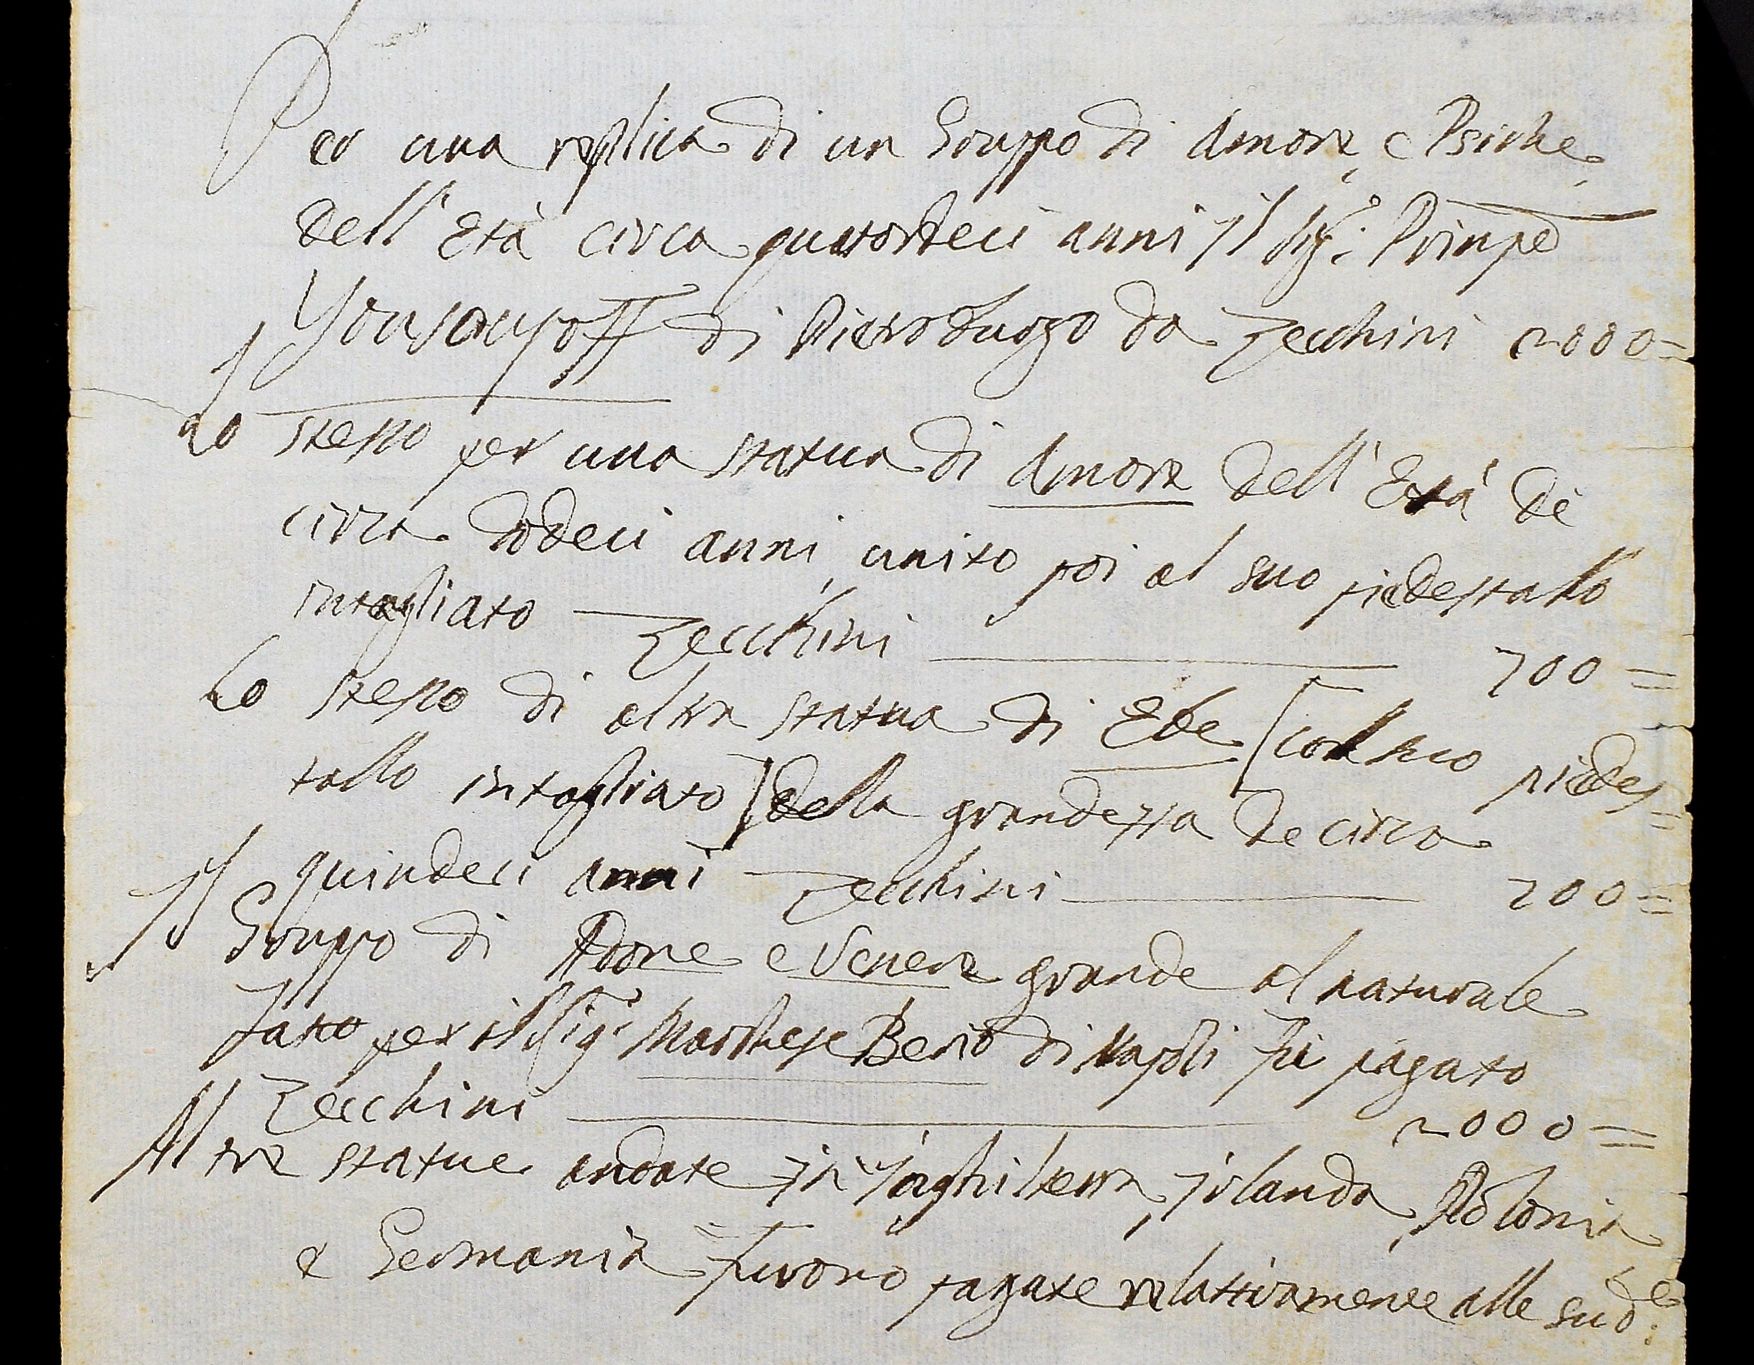 Per una replica di un Gruppo di Amore, e Psiche
dell'Età circa quatordeci anni jl Sig.e Prinpe
Yousoupoff di Pietroburgo da Zecchini 2000=
Lo stesso per una statua di Amore dell'Età de
circa dodeci anni, unito poi al suo piedestallo
intagliato — Zecchini — 700=
Lo stesso di altra statua di Ebe [col suo piedes=
tallo intagliato] della grandezza de circa
quindeci anni — Zecchini — 700=
Jl Gruppo di Adone e Venere grande al naturale
fatto per il Sig.e Marchese Berio di Napoli fù pagato
Zecchini — 2000=
Altre statue andate in Inghilterra, Jrlanda, Polonia
e Germania furono pagate relattivamente alle sud.te